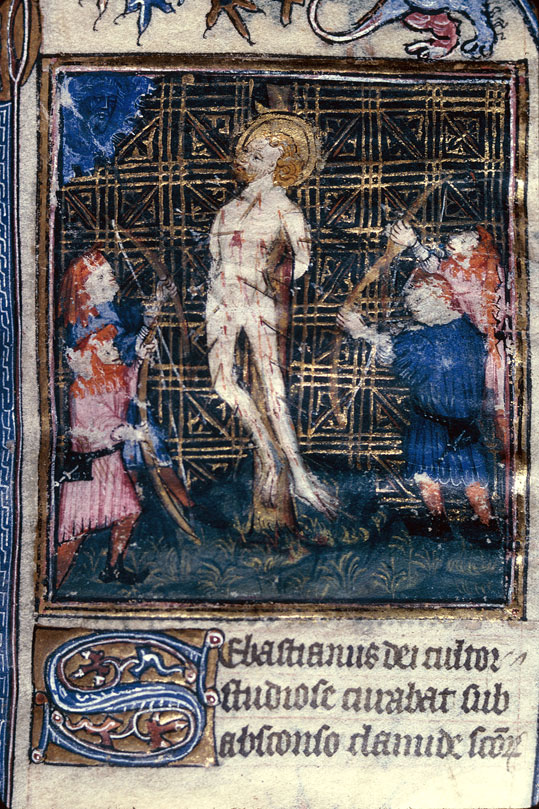 Sebastianus dei cultor
studiose curabat sub
absconso clamide scōꝝ